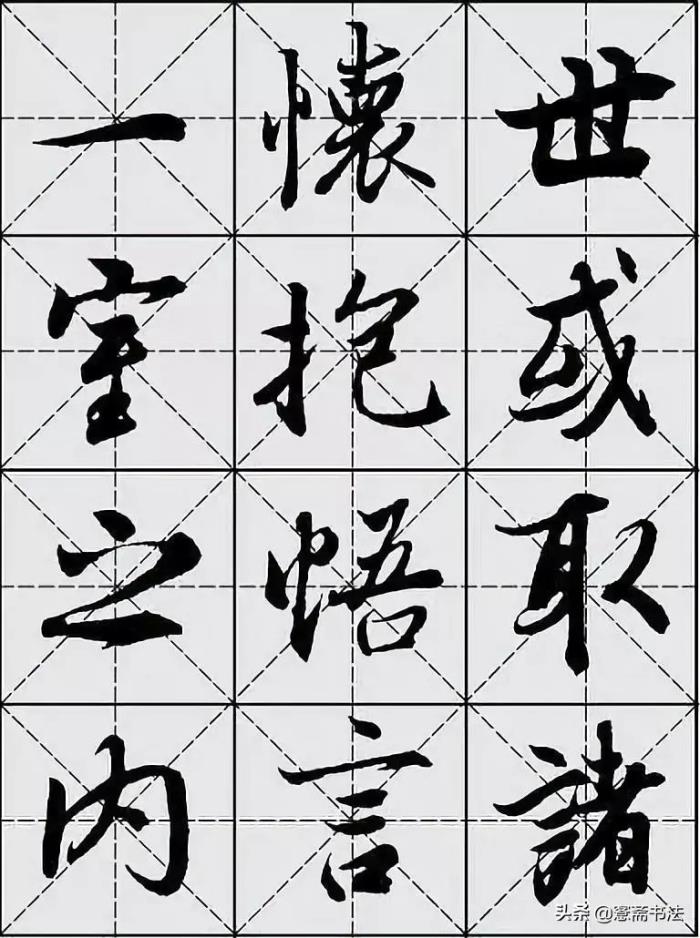 世或取諸
懷抱悟言
一室之内
头条 @愙斋书法